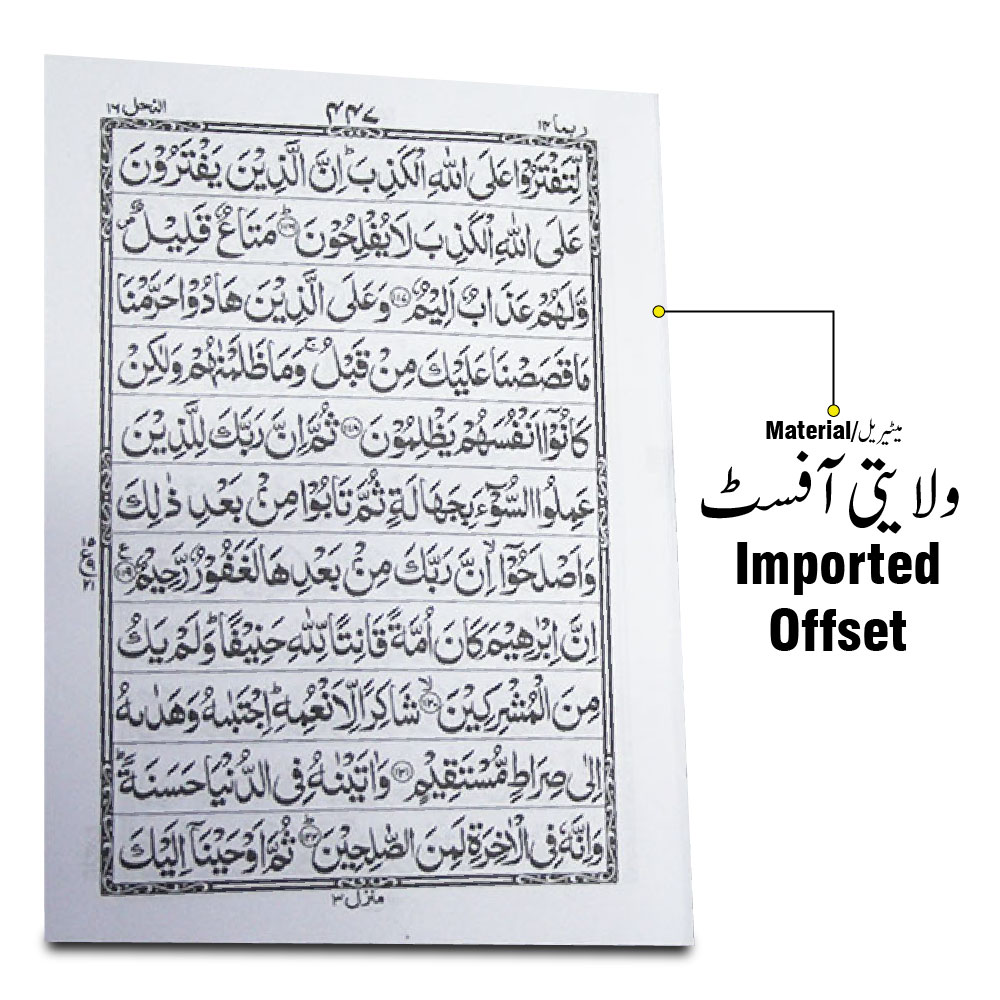 النحل ١٦
۴۴۷
ربما ١٤
لِّتَفْتَرُوْا عَلَى اللّٰهِ الْكَذِبَ ؕ اِنَّ الَّذِيْنَ يَفْتَرُوْنَ
عَلَى اللّٰهِ الْكَذِبَ لَا يُفْلِحُوْنَ ؕ ﴿١١٦﴾ مَتَاعٌ قَلِيْلٌ ۪
وَّلَهُمْ عَذَابٌ اَلِيْمٌ ﴿١١٧﴾ وَعَلَى الَّذِيْنَ هَادُوْا حَرَّمْنَا
مَا قَصَصْنَا عَلَيْكَ مِنْ قَبْلُ ۚ وَمَا ظَلَمْنٰهُمْ وَلٰكِنْ
كَانُوْۤا اَنْفُسَهُمْ يَظْلِمُوْنَ ﴿١١٨﴾ ثُمَّ اِنَّ رَبَّكَ لِلَّذِيْنَ
عَمِلُوا السُّوْٓءَ بِجَهَالَةٍ ثُمَّ تَابُوْا مِنْۢ بَعْدِ ذٰلِكَ
وَاَصْلَحُوْۤا ۙ اِنَّ رَبَّكَ مِنْۢ بَعْدِهَا لَغَفُوْرٌ رَّحِيْمٌ ﴿١١٩﴾ ع
اِنَّ اِبْرٰهِيْمَ كَانَ اُمَّةً قَانِتًا لِّلّٰهِ حَنِيْفًا ؕ وَلَمْ يَكُ
مِنَ الْمُشْرِكِيْنَ ۙ ﴿١٢٠﴾ شَاكِرًا لِّاَنْعُمِهٖ ؕ اِجْتَبٰىهُ وَهَدٰىهُ
اِلٰى صِرَاطٍ مُّسْتَقِيْمٍ ﴿١٢١﴾ وَاٰتَيْنٰهُ فِى الدُّنْيَا حَسَنَةً ؕ
وَاِنَّهٗ فِى الْاٰخِرَةِ لَمِنَ الصّٰلِحِيْنَ ؕ ﴿١٢٢﴾ ثُمَّ اَوْحَيْنَاۤ اِلَيْكَ
منزل ٣
Material/میٹیریل
ولایتی آفسٹ
Imported
Offset